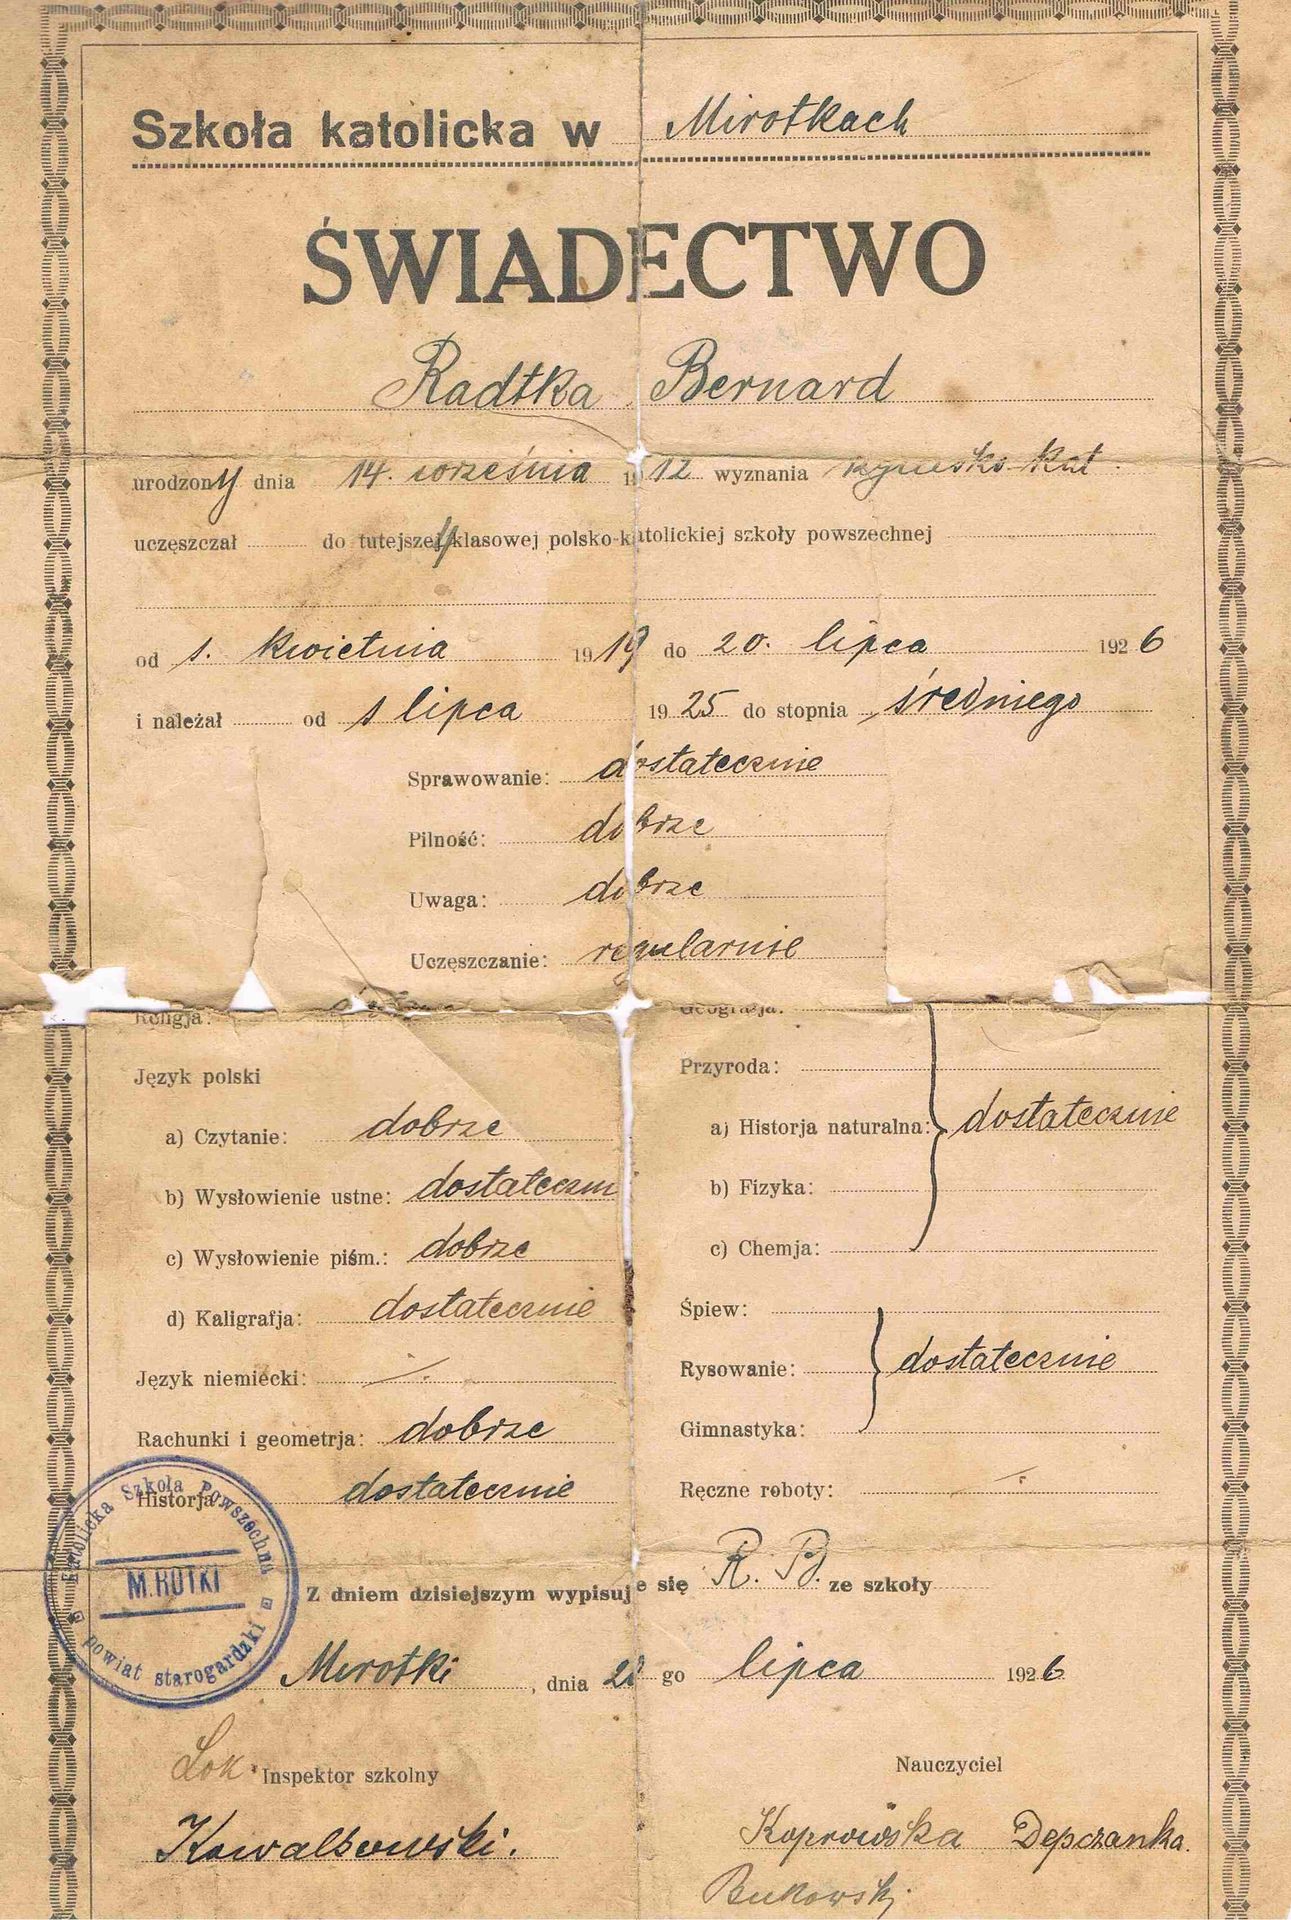 Szkoła katolicka w Mirotkach
ŚWIADECTWO
Radtka Bernard
urodzony dnia 14. września 1912 wyznania kat.
uczęszczał do tutejszej 4 klasowej polsko-katolickiej szkoły powszechnej
od 1. kwietnia 1919 do 20. lipca 1926
i należał od 1 lipca 1925 do stopnia średniego
Sprawowanie: dostatecznie
Pilność: dobrze
Uwaga: dobrze
Uczęszczanie: regularnie
Religja:
Język polski
a) Czytanie: dobrze
b) Wysłowienie ustne: dostateczn
c) Wysłowienie piśm.: dobrze
d) Kaligrafja: dostatecznie
Język niemiecki: ./.
Rachunki i geometrja: dobrze
Historja dostatecznie
Geografja:
Przyroda:
a) Historja naturalna: dostatecznie
b) Fizyka:
c) Chemja:
Śpiew:
Rysowanie: dostatecznie
Gimnastyka:
Ręczne roboty: ./.
Katolicka Szkoła Powszechna
M.ROTKI
powiat starogardzki
Z dniem dzisiejszym wypisuje się R. B. ze szkoły
Mirotki, dnia 20 go lipca 1926
Lok. Inspektor szkolny
Nauczyciel
Koprowska Depczanka.
Bukowski.